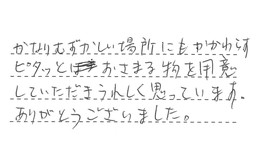 かなりむずかしい場所にもかかわらず
ピタッとおさまる物を用意
していただきうれしく思っています。
ありがとうございました。